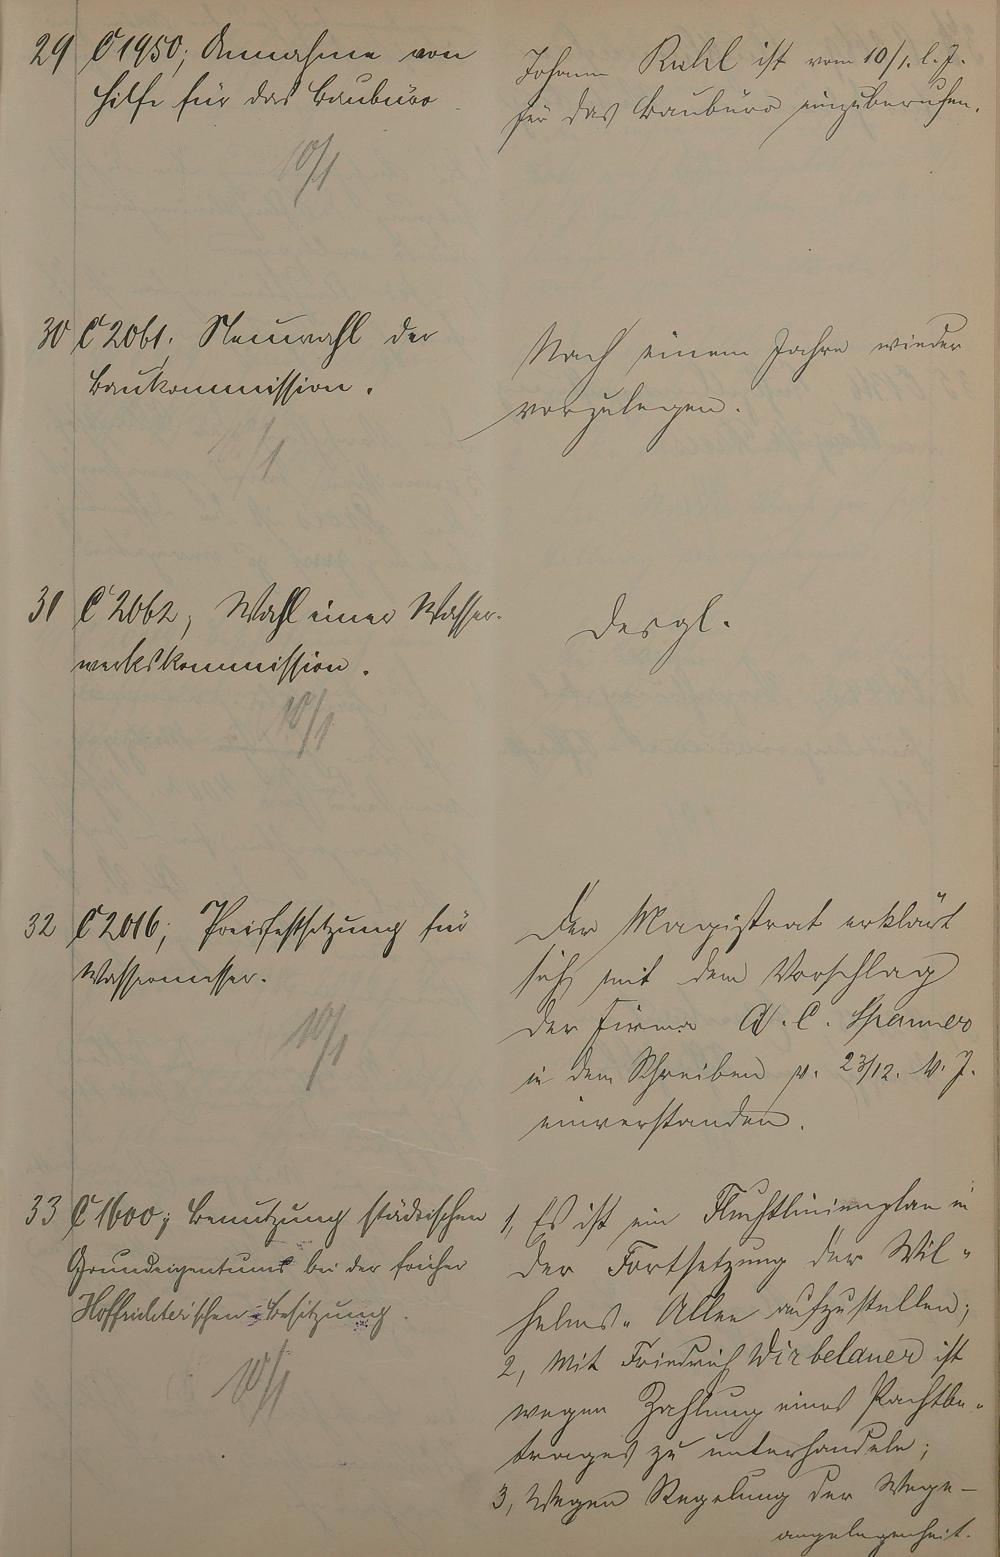 29 C 1950; Annahme von
Hilfe für das Baubüro
10/1
Johann Ruhl ist vom 10/1. l. J.
für das Baubüro einzuberufen.
30 C 2061; Neuwahl der
Baukommission.
10/1
Nach einem Jahre wieder
vorzulegen.
31 C 2062; Wahl einer Wasser-
werkskommission.
10/1
Desgl.
32 C 2016; Preisfestsetzung für
Wassermesser.
10/1
Der Magistrat erklärt
sich mit dem Vorschlag
der Firma A. C. Spanner
in dem Schreiben v. 23/12. v. J.
einverstanden.
33 C 1600; Benutzung städtischen
Grundeigentums bei der früher
Hoffrichterischen Besitzung
10/1
1, Es ist ein Fluchtlinienplan in
der Fortsetzung der Wil-
helms-Allee aufzustellen;
2, Mit Friedrich Wirbelauer ist
wegen Zahlung eines Pachtbe-
trages zu unterhandeln;
3, Wegen Regelung der Wege-
angelegenheit.